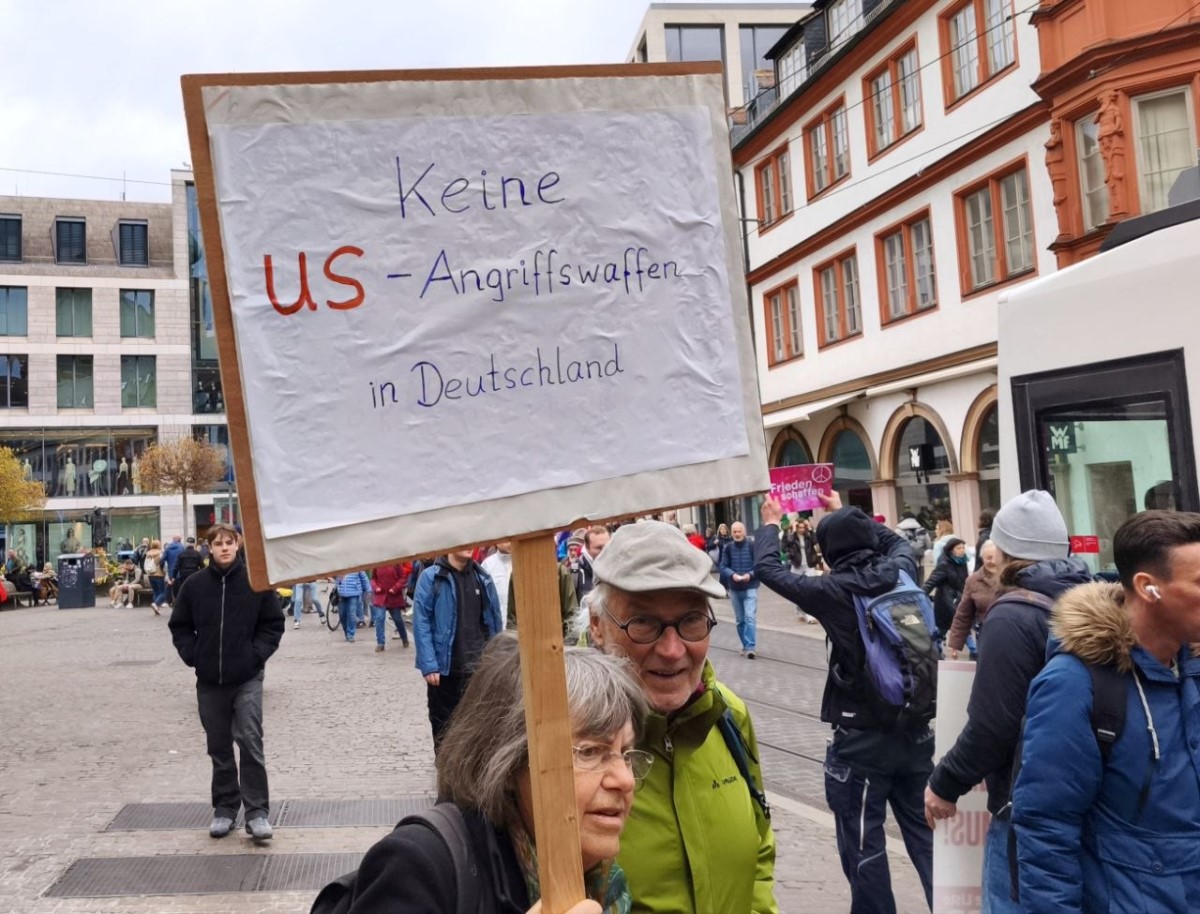 Keine
US - Angriffswaffen
in Deutschland
Frieden
schaffen
WMF
US!